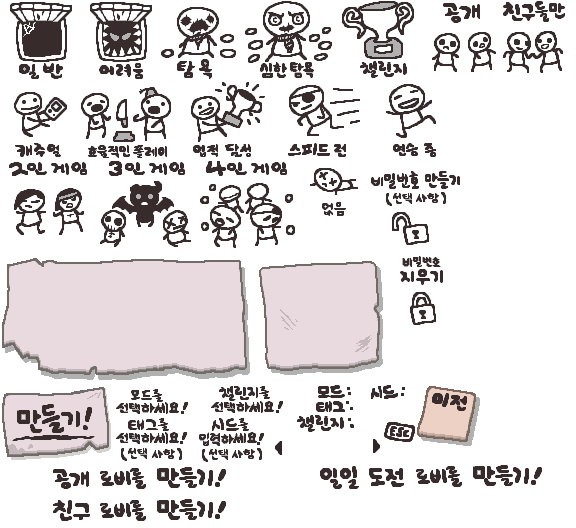 공개 친구들만
일반 어려움 탐욕 심한탐욕 챌린지
캐주얼 효율적인 플레이 업적 달성 스피드 런 연습 중
2인 게임 3인 게임 4인 게임
없음
비밀번호 만들기
(선택 사항)
비밀번호
지우기
만들기!
모드를
선택하세요!
태그를
선택하세요!
(선택 사항)
챌린지를
선택하세요!
시드를
입력하세요!
(선택 사항)
모드: 시드:
태그:
챌린지:
이전
ESC
공개 로비를 만들기! 일일 도전 로비를 만들기!
친구 로비를 만들기!